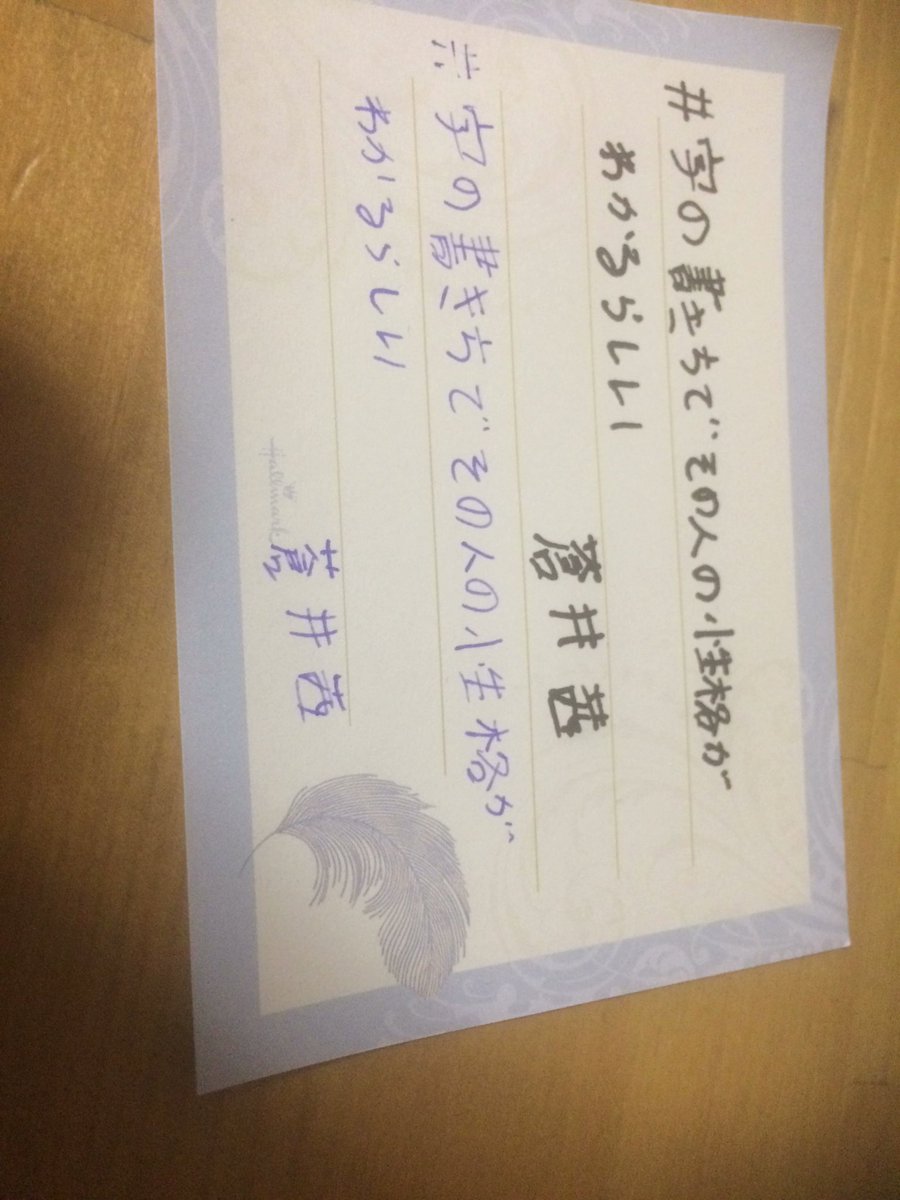 #字の書き方でその人の性格が
わかるらしい
蒼井茜
#字の書き方でその人の性格が
わかるらしい
蒼井茜
Hallmark